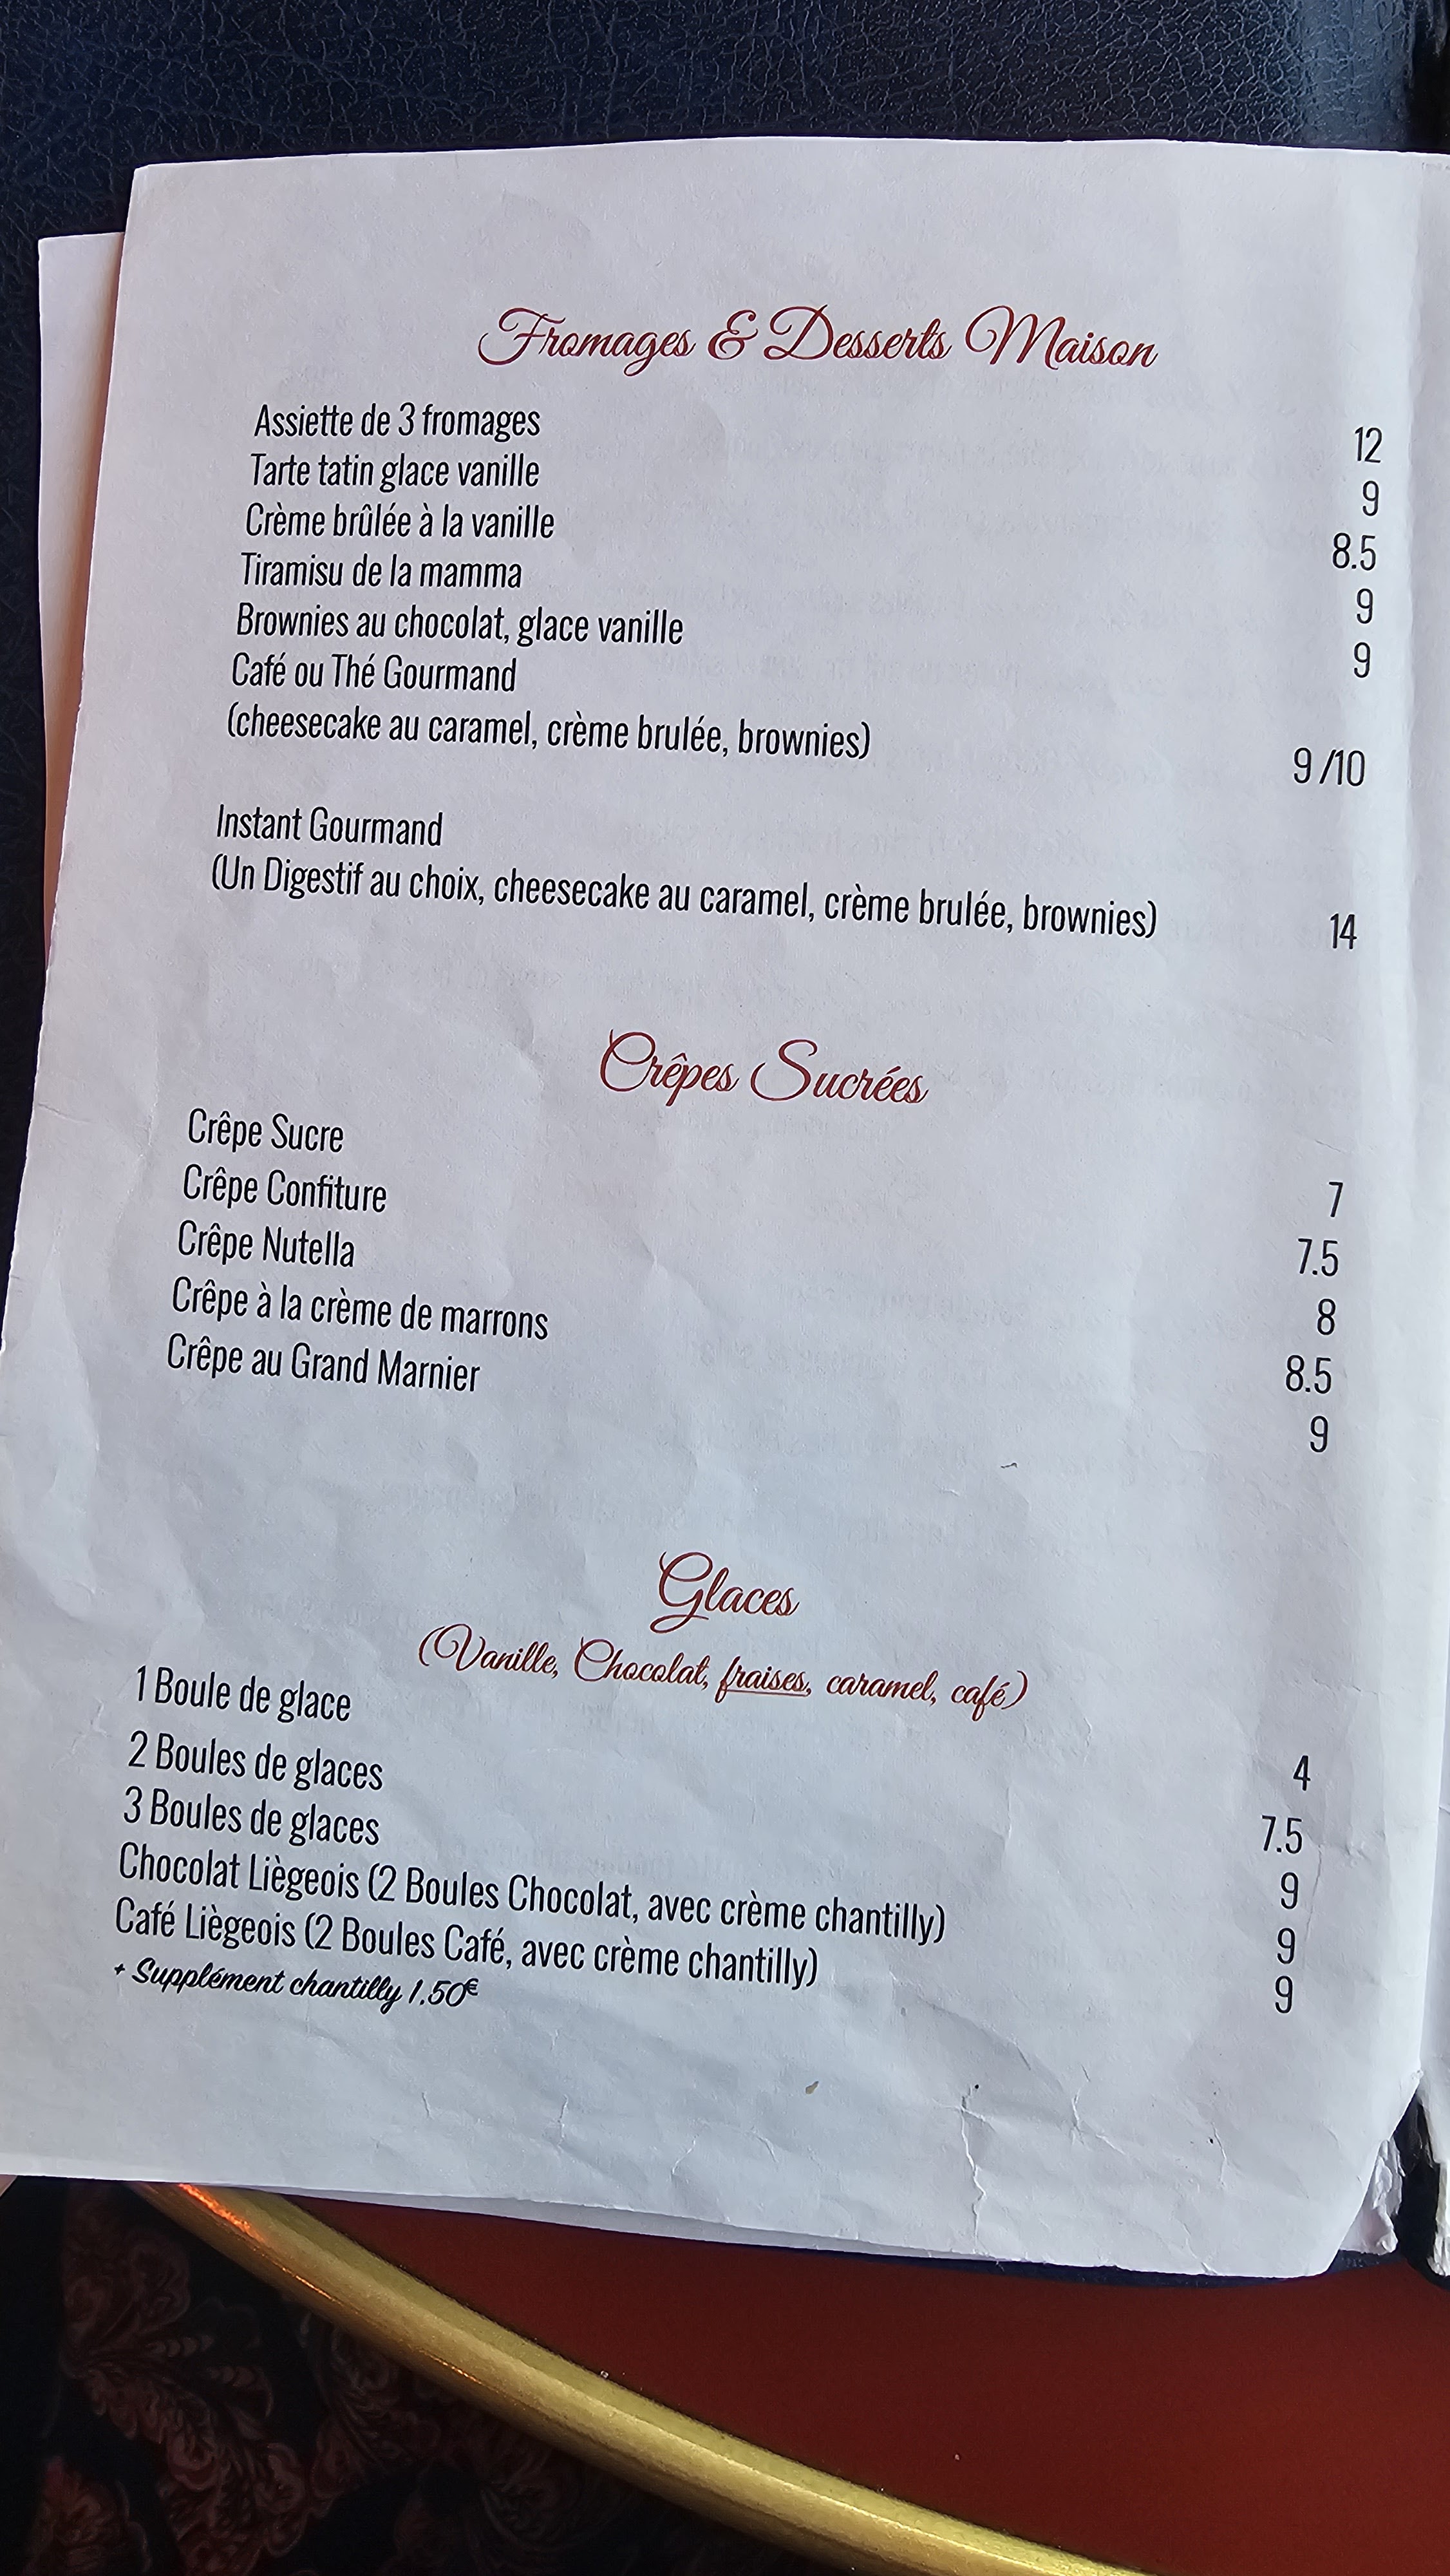 Fromages & Desserts Maison
Assiette de 3 fromages 12
Tarte tatin glace vanille 9
Crème brûlée à la vanille 8.5
Tiramisu de la mamma 9
Brownies au chocolat, glace vanille 9
Café ou Thé Gourmand
(cheesecake au caramel, crème brulée, brownies) 9 /10
Instant Gourmand
(Un Digestif au choix, cheesecake au caramel, crème brulée, brownies) 14
Crêpes Sucrées
Crêpe Sucre 7
Crêpe Confiture 7.5
Crêpe Nutella 8
Crêpe à la crème de marrons 8.5
Crêpe au Grand Marnier 9
Glaces
(Vanille, Chocolat, fraises, caramel, café)
1 Boule de glace 4
2 Boules de glaces 7.5
3 Boules de glaces 9
Chocolat Liègeois (2 Boules Chocolat, avec crème chantilly) 9
Café Liègeois (2 Boules Café, avec crème chantilly) 9
+ Supplément chantilly 1,50€